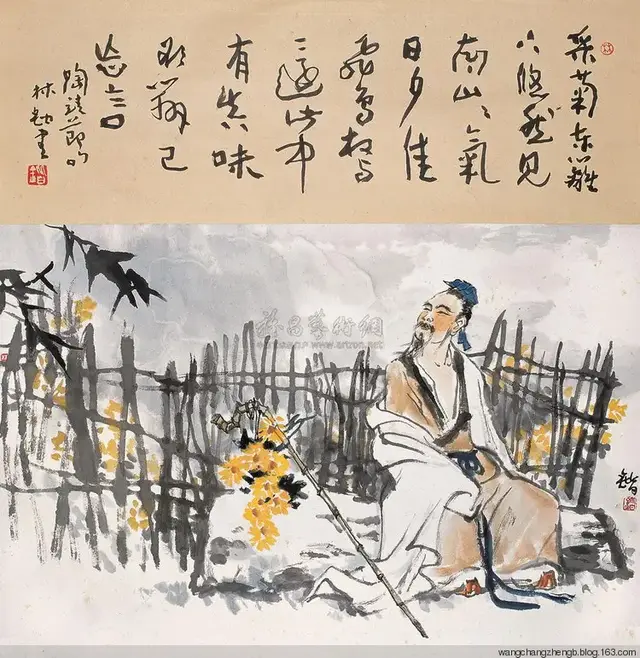 采菊东籬
下悠然见
南山々氣
日夕佳
飛鸟相与
還此中
有真味
欲辨已
忘言
陶靖節句
林 書
智
雅昌藝術網
www.artron.net
wangchangzhengb.blog.163.com